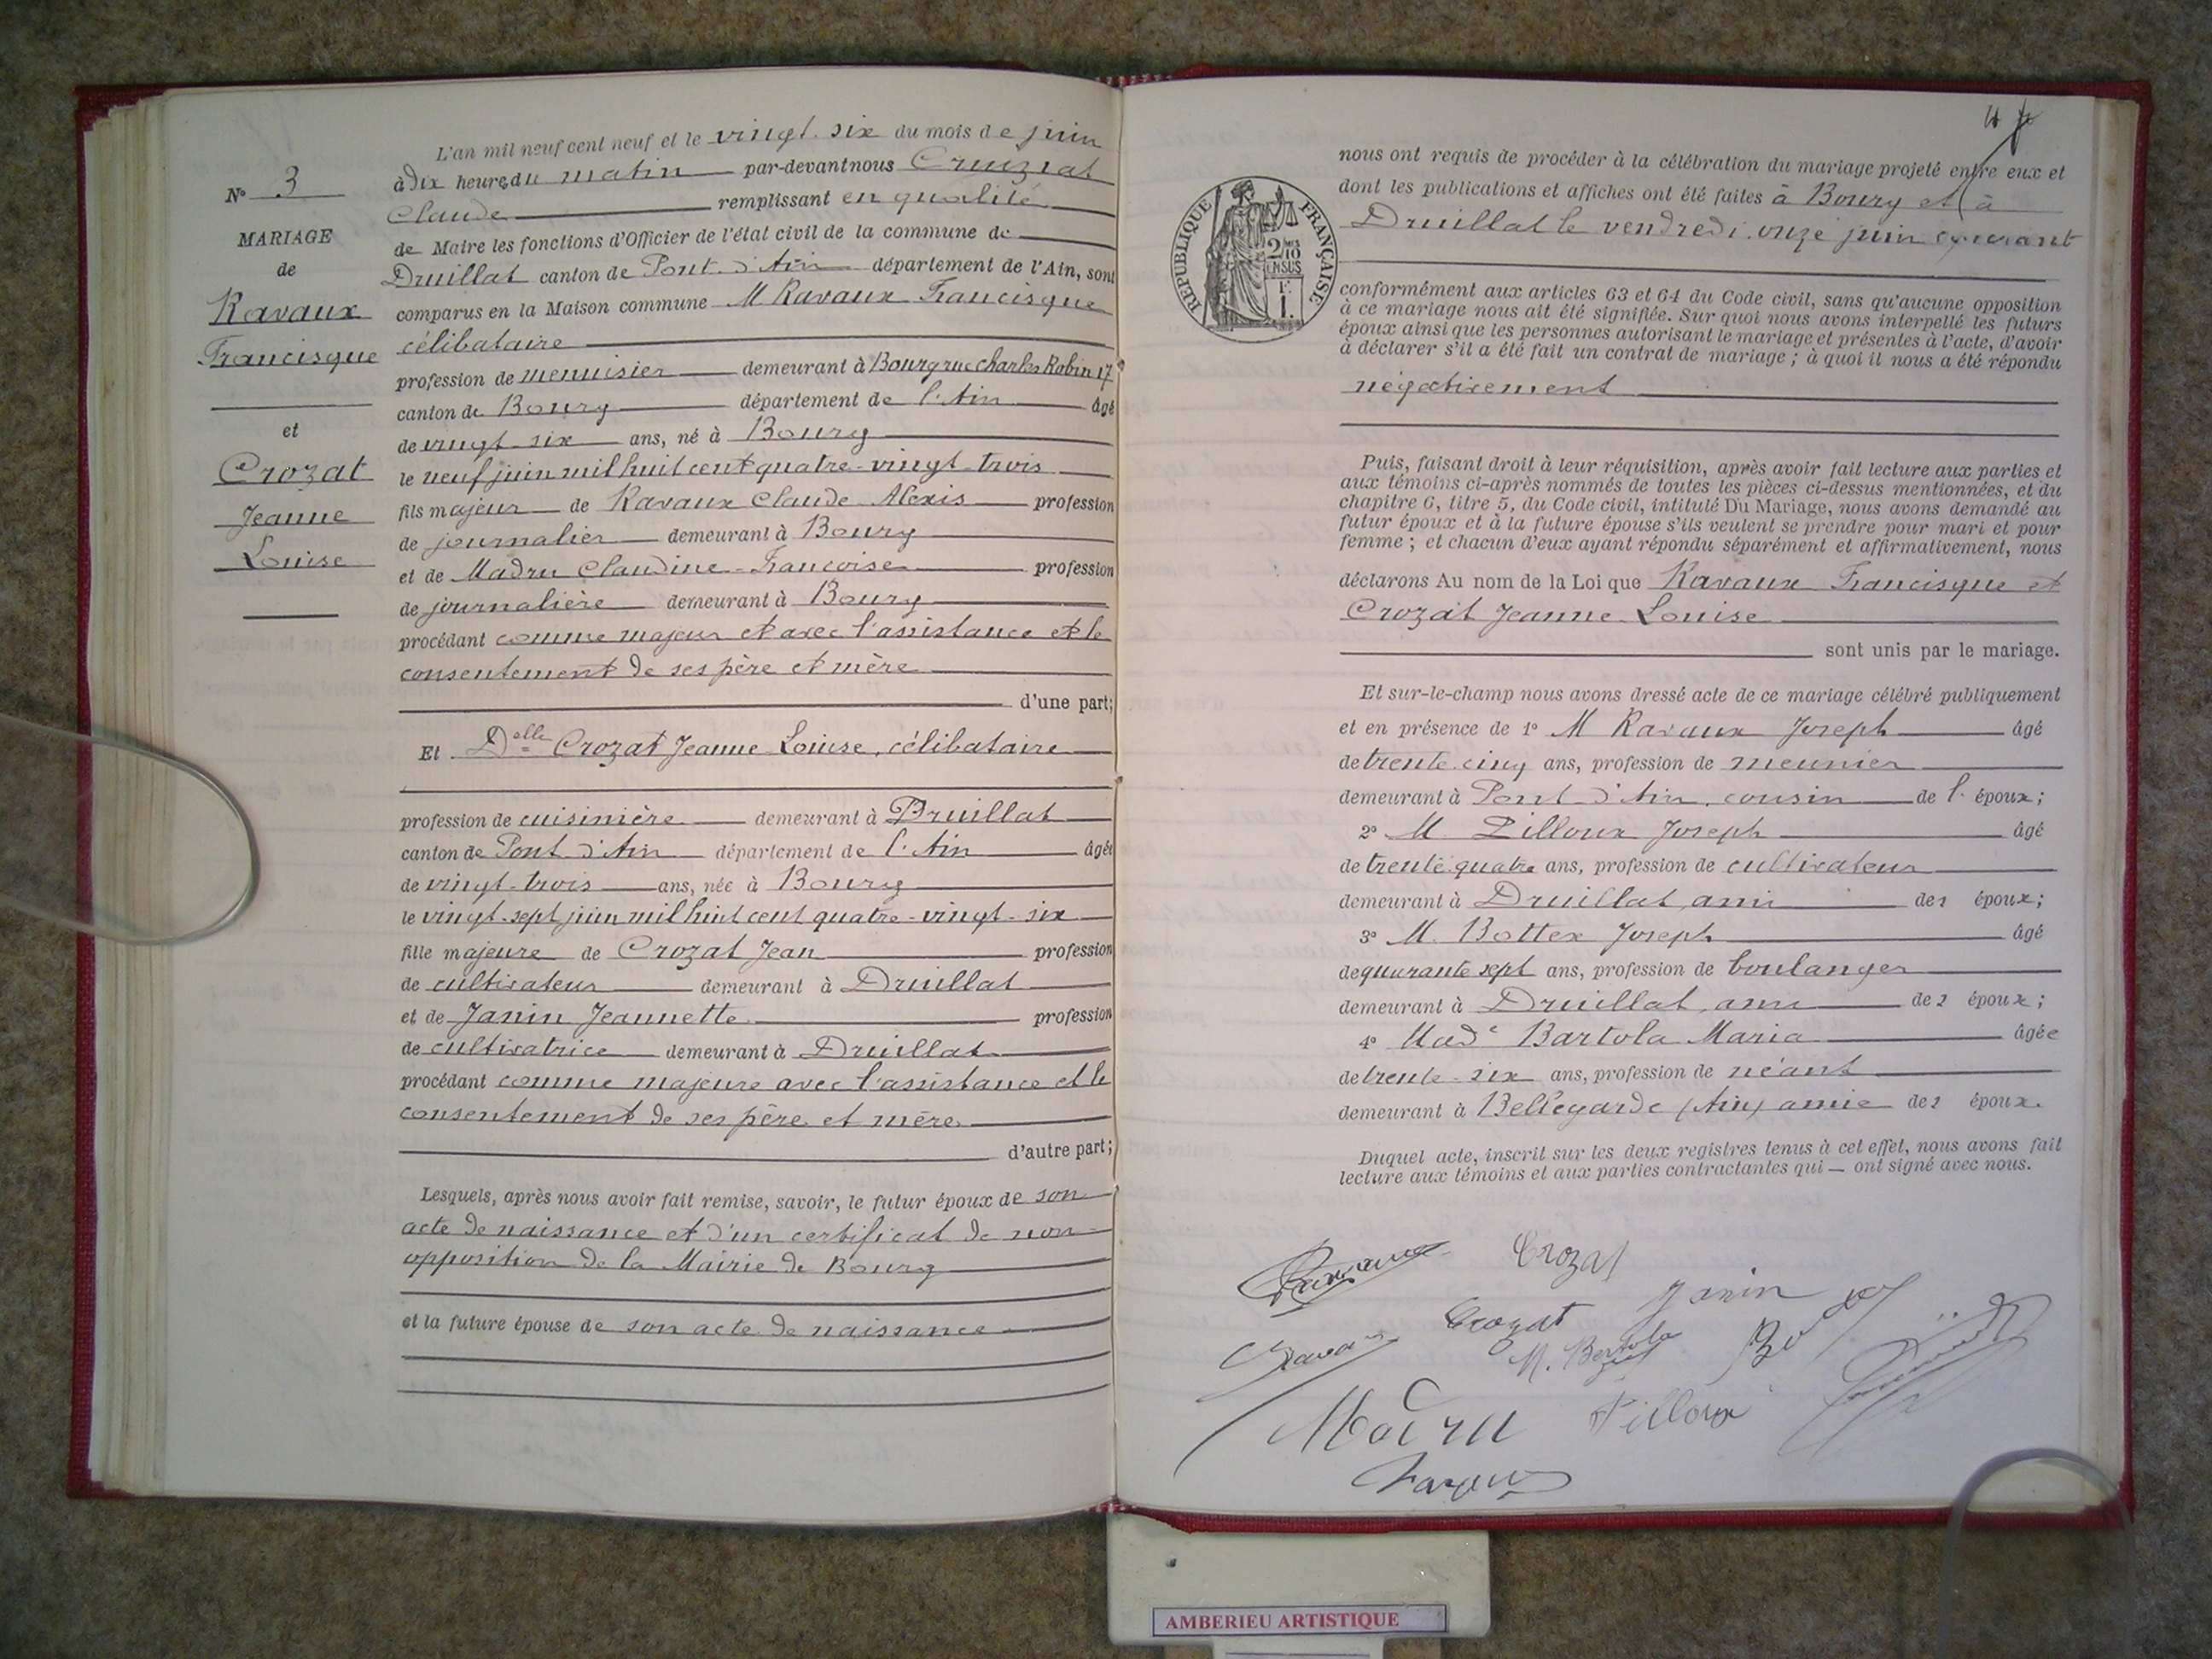 N° 3
MARIAGE
de
Ravaux
Francisque
et
Crozat
Jeanne
Louise
L'an mil neuf cent neuf et le vingt-six du mois de juin
à dix heures du matin par-devant nous Cruziat
Claude remplissant en qualité
de Maire les fonctions d'Officier de l'état civil de la commune de
Druillat canton de Pont-d'Ain département de l'Ain, sont
comparus en la Maison commune M Ravaux Francisque
célibataire
profession de menuisier demeurant à Bourg rue Charles Robin 17
canton de Bourg département de l'Ain âgé
de vingt-six ans, né à Bourg
le neuf juin mil huit cent quatre-vingt-trois
fils majeur de Ravaux Claude-Alexis profession
de journalier demeurant à Bourg
et de Madru Claudine-Françoise profession
de journalière demeurant à Bourg
procédant comme majeur et avec l'assistance et le
consentement de ses père et mère
d'une part;
Et Delle Crozat Jeanne-Louise, célibataire
profession de cuisinière demeurant à Druillat
canton de Pont-d'Ain département de l'Ain âgée
de vingt-trois ans, née à Bourg
le vingt-sept juin mil huit cent quatre-vingt-six
fille majeure de Crozat Jean profession
de cultivateur demeurant à Druillat
et de Janin Jeannette profession
de cultivatrice demeurant à Druillat
procédant comme majeure avec l'assistance et le
consentement de ses père et mère
d'autre part;
Lesquels, après nous avoir fait remise, savoir, le futur époux de son
acte de naissance et d'un certificat de non-
opposition de la Mairie de Bourg
et la future épouse de son acte de naissance
nous ont requis de procéder à la célébration du mariage projeté entre eux et
dont les publications et affiches ont été faites à Bourg et à
Druillat le vendredi onze juin courant
RÉPUBLIQUE FRANÇAISE
conformément aux articles 63 et 64 du Code civil, sans qu'aucune opposition
à ce mariage nous ait été signifiée. Sur quoi nous avons interpellé les futurs
époux ainsi que les personnes autorisant le mariage et présentes à l'acte, d'avoir
à déclarer s'il a été fait un contrat de mariage ; à quoi il nous a été répondu
négativement
Puis, faisant droit à leur réquisition, après avoir fait lecture aux parties et
aux témoins ci-après nommés de toutes les pièces ci-dessus mentionnées, et du
chapitre 6, titre 5, du Code civil, intitulé Du Mariage, nous avons demandé au
futur époux et à la future épouse s'ils veulent se prendre pour mari et pour
femme ; et chacun d'eux ayant répondu séparément et affirmativement, nous
déclarons Au nom de la Loi que Ravaux Francisque et
Crozat Jeanne-Louise
sont unis par le mariage.
Et sur-le-champ nous avons dressé acte de ce mariage célébré publiquement
et en présence de 1° M Ravaux Joseph âgé
de trente-cinq ans, profession de meunier
demeurant à Pont-d'Ain, cousin de l' époux;
2° M. Pilloux Joseph âgé
de trente-quatre ans, profession de cultivateur
demeurant à Druillat, ami des époux;
3° M. Bottex Joseph âgé
de quarante sept ans, profession de boulanger
demeurant à Druillat, ami des époux;
4° Made Bartola Maria âgée
de trente-six ans, profession de néant
demeurant à Bellegarde (Ain) amie des époux.
Duquel acte, inscrit sur les deux registres tenus à cet effet, nous avons fait
lecture aux témoins et aux parties contractantes qui — ont signé avec nous.
Ravaux Crozat
Crozat Janin
M. Bertola
Madru Pilloux
AMBERIEU ARTISTIQUE